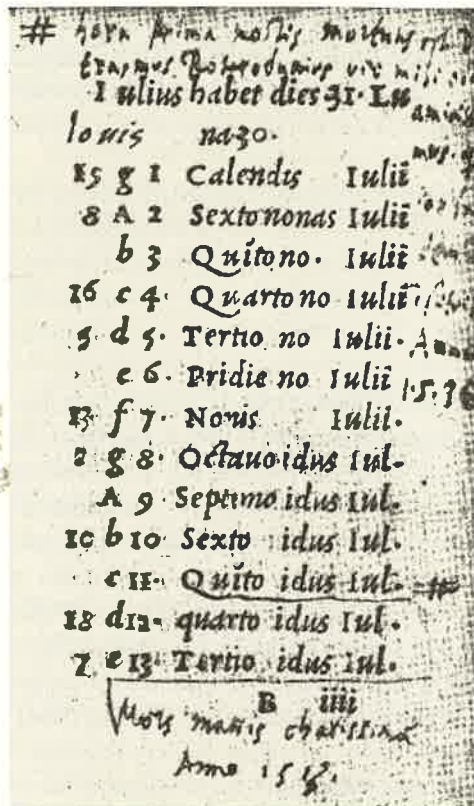 # hora prima noctis mortuus est D
Erasmus Roterodamus vir
Iulius habet dies 31. Lu
amicis
Iouis na 30.
mus.
15 g 1 Calendis Iulii
8 A 2 Sexto nonas Iulii
b 3 Quĩto no. Iulii
16 c 4. Quarto no Iulii
5 d 5. Tertio no Iulii. Anno
e 6. Pridie no Iulii 1.5.36
13 f 7. Nonis Iulii.
2 g 8. Octauo idus Iul.
A 9 Septimo idus Iul.
10 b 10. Sexto idus Iul.
c 11. Quĩto idus Iul. #
18 d 12. quarto idus Iul.
7 e 13. Tertio idus Iul.
B iiii
Mors matris charissimæ
Anno